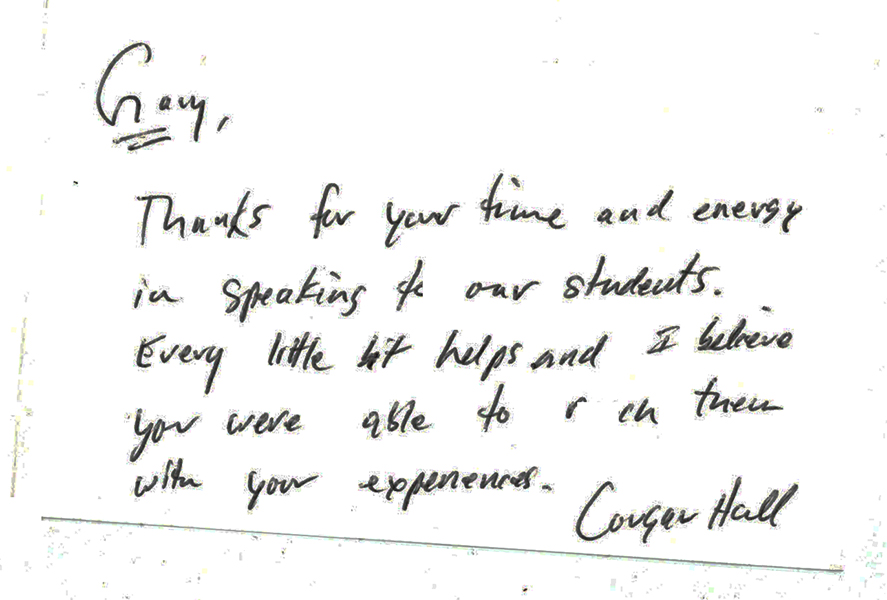 Gary,
Thanks for your time and energy
in speaking to our students.
Every little bit helps and I believe
you were able to r ch them
with your experiences.
Cougar Hall